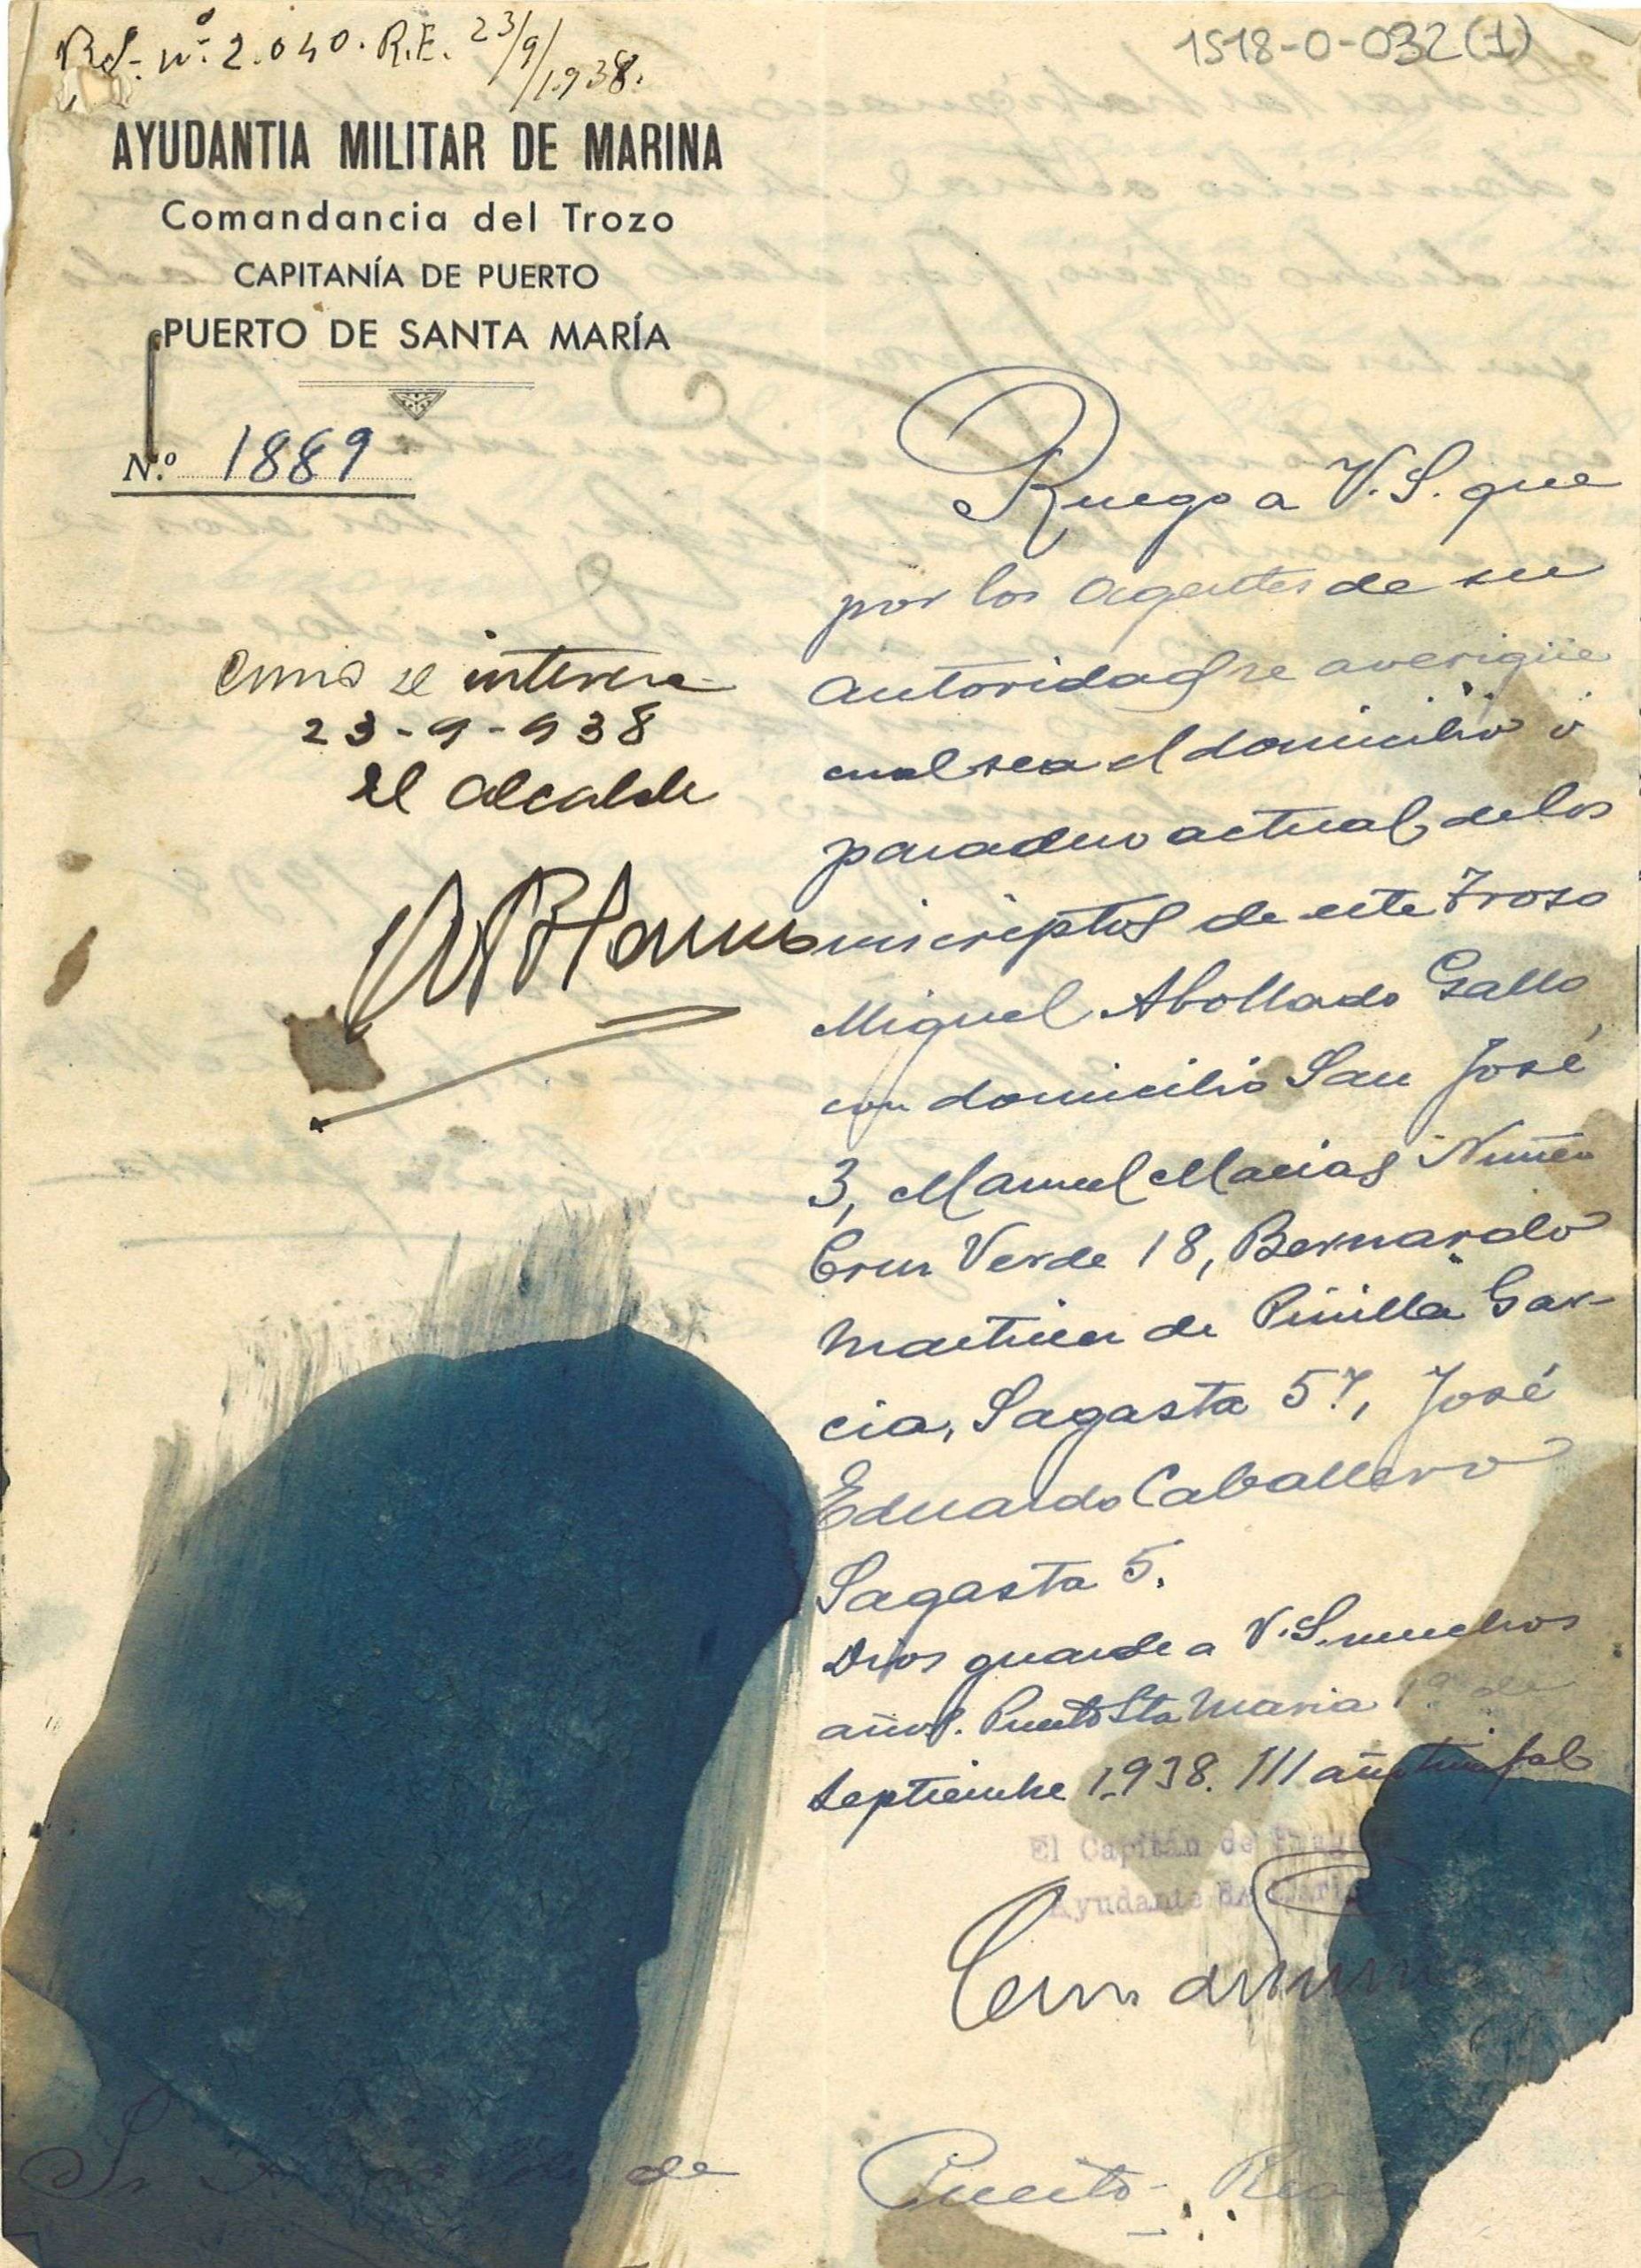 Rf. nº 2.040. R.E. 23/9/1.938.
1518-0-032(1)
AYUDANTIA MILITAR DE MARINA
Comandancia del Trozo
CAPITANÍA DE PUERTO
PUERTO DE SANTA MARÍA
N.º 1889
Como se interesa
23-9-938
El Alcalde
Ruego a V.S. que
por los Agentes de su
autoridad se averigüe
cual sea el domicilio ó
paradero actual de los
inscriptos de este Trozo
Miguel Abollado Gallo,
con domicilio San José
3, Manuel Macias Nuñez
Cruz Verde 18, Bernardo
Martinez de Pinilla Gar-
cia, Sagasta 57, José
Eduardo Caballero
Sagasta 5.
Dios guarde a V.S. muchos
años. Puerto Sta Maria 1º de
Septiembre 1.938. III año triunfal
El Capitán de
Ayudante de Marina
Sr de
Puerto-Real